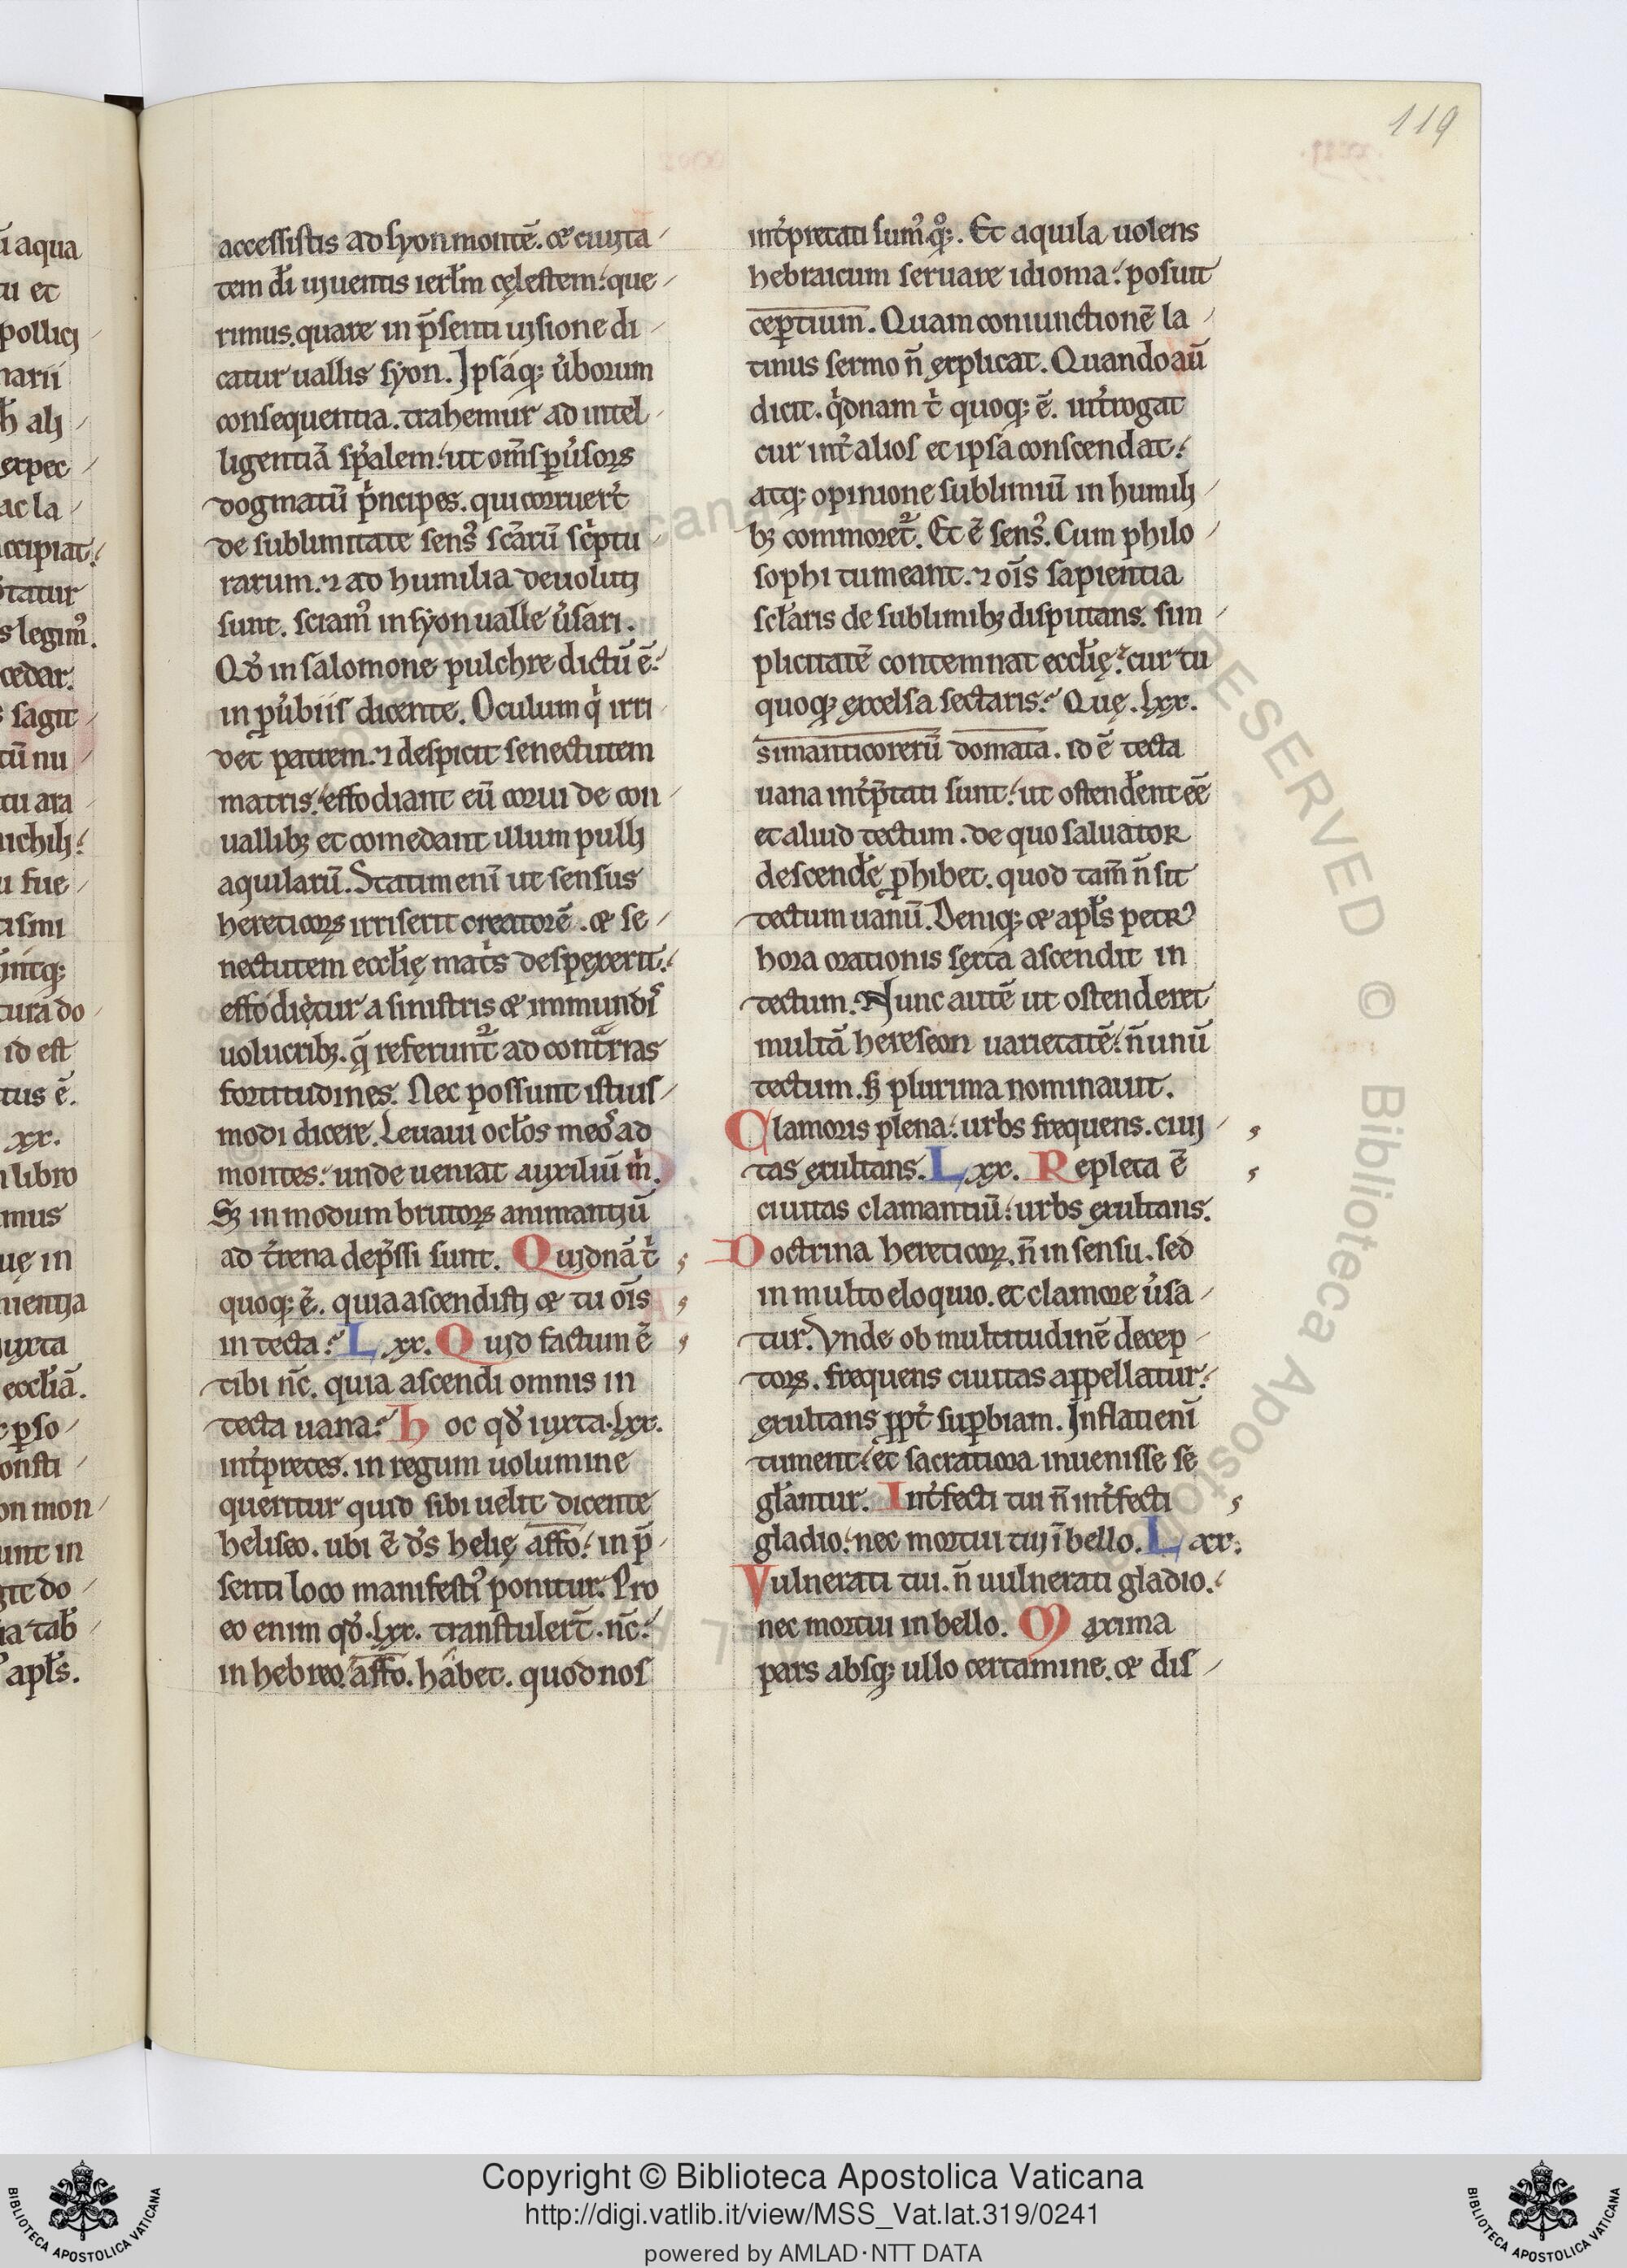 119
accessistis ad syon montē. & ciuita
tem dī uiuentis ierlm̄ cęlestem: que
rimus. quare in p̄senti uisione di
catur uallis syon. Ipsaq; ũborum
consequentia. trahemur ad intel
ligentiā sp̄alem: ut om̄s puͥsoꝝ
dogmatū pͥncipes. qui corruer̄t
de sublimitate sens᷒ sc̄arū sc̄ptu
rarum. ⁊ ad humilia deuoluti
sunt. sciam᷒ in syon ualle u᷒sari.
Qđ in salomone pulchre dictū ē:
in pu᷒biis dicente. Oculum qͥ irri
det patrem. ⁊ despicit senectutem
matris: effodiant eū corui de con
uallibꝫ et comedant illum pulli
aquilarū. Statim eni̅ ut sensus
hereticoꝝ irriserit creatorē. & se
nectutem eccl̄ię mat͛s despexerit:
effodiętur a sinistris & immundis
uolucribꝫ. q̄ referunt᷑ ad contrarias
fortitudines. Nec possunt istius
modi dicere. Leuaui ocl̄os meos ad
montes: unde ueniat auxiliū m̍.
Sꝫ in modum brutoꝝ animantiū
ad t͛rena dep̄ssi sunt. Quidnā t̍
quoq; ē. quia ascendisti & tu oīs
in tecta? Lxx. Quid factum ē
tibi nc̄. quia ascendi omnis in
tecta uana? Hoc qđ iuxta lxx.
int͛pretes. in regum uolumine
queritur quid sibi uelit dicente
heliseo. ubi ē d̄s helię affo: in p̄
senti loco manifesti᷒ ponitur. Pro
eo enim qđ lxx. transtuler̄t. nc̄:
in hebreo. affo. habet. quod nos
int͛pretati sum᷒ qͦq;. Et aquila uolens
hebraicum seruare idioma: posuit
ceptium. Quam coniunctionē la
tinus sermo n̄ explicat. Quando aū
dicit. qͥdnam t̍ quoq; ē. int͛rogat
cur int͛ alios et ipsa conscendat:
atq; opinione sublimiū in humili
bꝫ commoret᷑. Et ē sens᷒. Cum philo
sophi tumeant. ⁊ oīs sapientia
scl̄aris de sublimibꝫ disputans. sim
plicitatē contemnat eccl̄ię: cur tu
quoq; excelsa sectaris? Quę. lxx.
simanticorerū domata. id ē tecta
uana int͛p̄tati sunt: ut ostend͛ent eē
et aliud tectum. de quo saluator
descend͛e phibet. quod tam̄ n̄ sit
tectum uanū. Deniq; & apl̄s petr᷒
hora orationis sexta ascendit in
tectum. Nunc autē ut ostenderet
multā hereseon uarietatē: n̄ unū
tectum. sꝫ plurima nominauit.
Clamoris plena: urbs frequens. ciui
tas exultans. Lxx. Repleta ē
ciuitas clamantiū: urbs exultans.
Doctrina hereticoꝝ. n̄ in sensu. sed
in multo eloquio. et clamore u᷒sa
tur. Vnde ob multitudinē decep
toꝝ. frequens ciuitas appellatur:
exultans ꝓpt͛ supbiam. Inflati eni̅
tument: et sacratiora inuenisse se
gl̄antur. Int͛fecti tui n̄ int͛fecti
gladio: nec mortui tui ī bello. Lxx.
Vulnerati tui. n̄ uulnerati gladio:
nec mortui in bello. Maxima
pars absq; ullo certamine. & dis
Copyright © Biblioteca Apostolica Vaticana
http://digi.vatlib.it/view/MSS_Vat.lat.319/0241
powered by AMLAD·NTT DATA
BIBLIOTECA APOSTOLICA VATICANA
BIBLIOTECA APOSTOLICA VATICANA